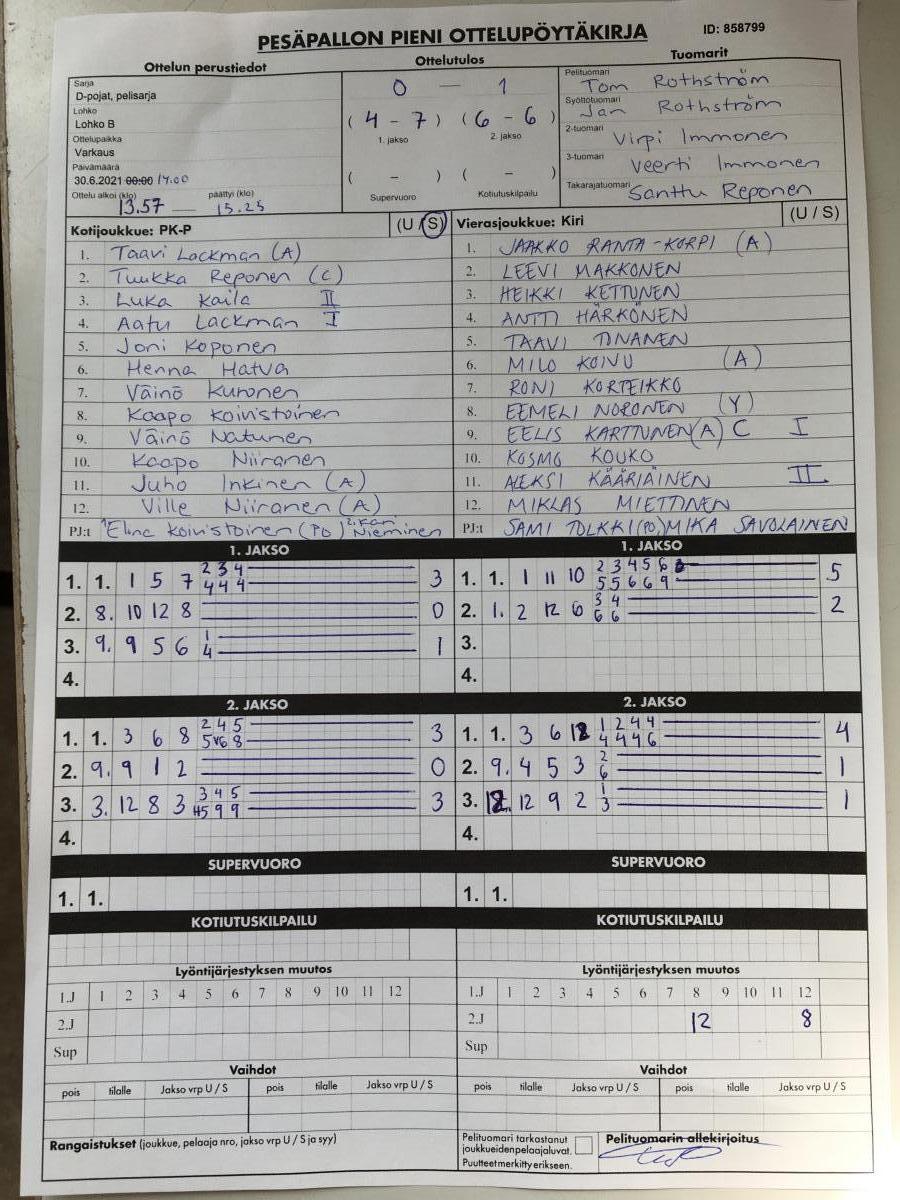 PESÄPALLON PIENI OTTELUPÖYTÄKIRJA
ID: 858799
Ottelun perustiedot
Sarja
D-pojat, pelisarja
Lohko
Lohko B
Ottelupaikka
Varkaus
Päivämäärä
30.6.2021 00:00 14.00
Ottelu alkoi (klo) päättyi (klo)
13.57 15.25
Ottelutulos
0 — 1
( 4 - 7 ) ( 6 - 6 )
1. jakso 2. jakso
( - ) ( - )
Supervuoro Kotiutuskilpailu
Tuomarit
Pelituomari
Tom Rothström
Syöttötuomari
Jan Rothström
2-tuomari
Virpi Immonen
3-tuomari
Veerti Immonen
Takarajatuomari
Santtu Reponen
Kotijoukkue: PK-P (U / S)
1. Taavi Lackman (A)
2. Tuukka Reponen (C)
3. Luka Kaila II
4. Aatu Lackman I
5. Joni Koponen
6. Henna Hatva
7. Väinö Kuronen
8. Kaapo Koivistoinen
9. Väinö Natunen
10. Kaapo Niiranen
11. Juho Inkinen (A)
12. Ville Niiranen (A)
PJ:t 1. Elina Koivistoinen (PO) 2. Kari Nieminen
Vierasjoukkue: Kiri (U / S)
1. JAAKKO RANTA-KORPI (A)
2. LEEVI MAKKONEN
3. HEIKKI KETTUNEN
4. ANTTI HÄRKÖNEN
5. TAAVI
6. MILO KOIVU (A)
7. RONI KORTEIKKO
8. EEMELI NORONEN (Y)
9. EELIS KARTTUNEN (A) C I
10. KOSMO KOUKO
11. ALEKSI KÄÄRIÄINEN II
12. MIKLAS MIETTINEN
PJ:t SAMI TOLKKI (PO) MIKA SAVOLAINEN
1. JAKSO
2 3 4
1. 1. 1 5 7 3
4 4 4
2. 8. 10 12 8 0
1
3. 9. 9 5 6 1
4
4.
1. JAKSO
2 3 4 5 6
1. 1. 1 11 10 5
5 5 6 6 9
3 4
2. 1. 2 12 6 2
6 6
3.
4.
2. JAKSO
2 4 5
1. 1. 3 6 8 3
5 6 8
2. 9. 9 1 2 0
3 4 5
3. 3. 12 8 3 3
5 9 9
4.
2. JAKSO
1 2 4 4
1. 1. 3 6 12 4
4 4 4 6
2
2. 9. 4 5 3 1
6
1
3. 12. 12 9 2 1
3
4.
SUPERVUORO
1. 1.
SUPERVUORO
1. 1.
KOTIUTUSKILPAILU
KOTIUTUSKILPAILU
Lyöntijärjestyksen muutos
1.J 1 2 3 4 5 6 7 8 9 10 11 12
2.J
Sup
Lyöntijärjestyksen muutos
1.J 1 2 3 4 5 6 7 8 9 10 11 12
2.J 12 8
Sup
Vaihdot
pois tilalle Jakso vrp U / S pois tilalle Jakso vrp U / S
Vaihdot
pois tilalle Jakso vrp U / S pois tilalle Jakso vrp U / S
Rangaistukset (joukkue, pelaaja nro, jakso vrp U / S ja syy)
Pelituomari tarkastanut
joukkueidenpelaajaluvat.
Puutteet merkitty erikseen.
Pelituomarin allekirjoitus